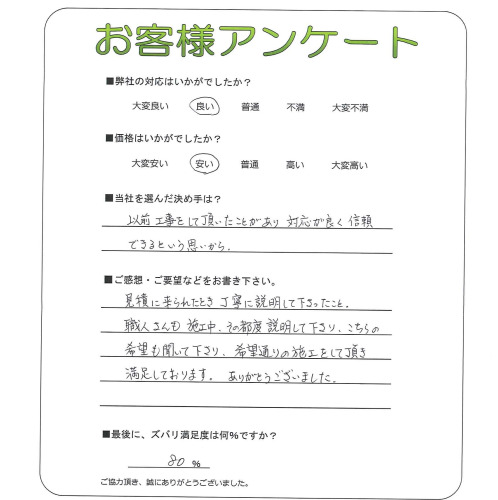 お客様アンケート
■弊社の対応はいかがでしたか？
大変良い 良い 普通 不満 大変不満
■価格はいかがでしたか？
大変安い 安い 普通 高い 大変高い
■当社を選んだ決め手は？
以前工事をして頂いたことがあり 対応が良く信頼
できるという思いから.
■ご感想・ご要望などをお書き下さい。
見積に来られたとき丁寧に説明して下さったこと.
職人さんも施工中、その都度説明して下さり、こちらの
希望も聞いて下さり、希望通りの施工をして頂き
満足しております。ありがとうございました.
■最後に、ズバリ満足度は何%ですか？
80 %
ご協力頂き、誠にありがとうございました。